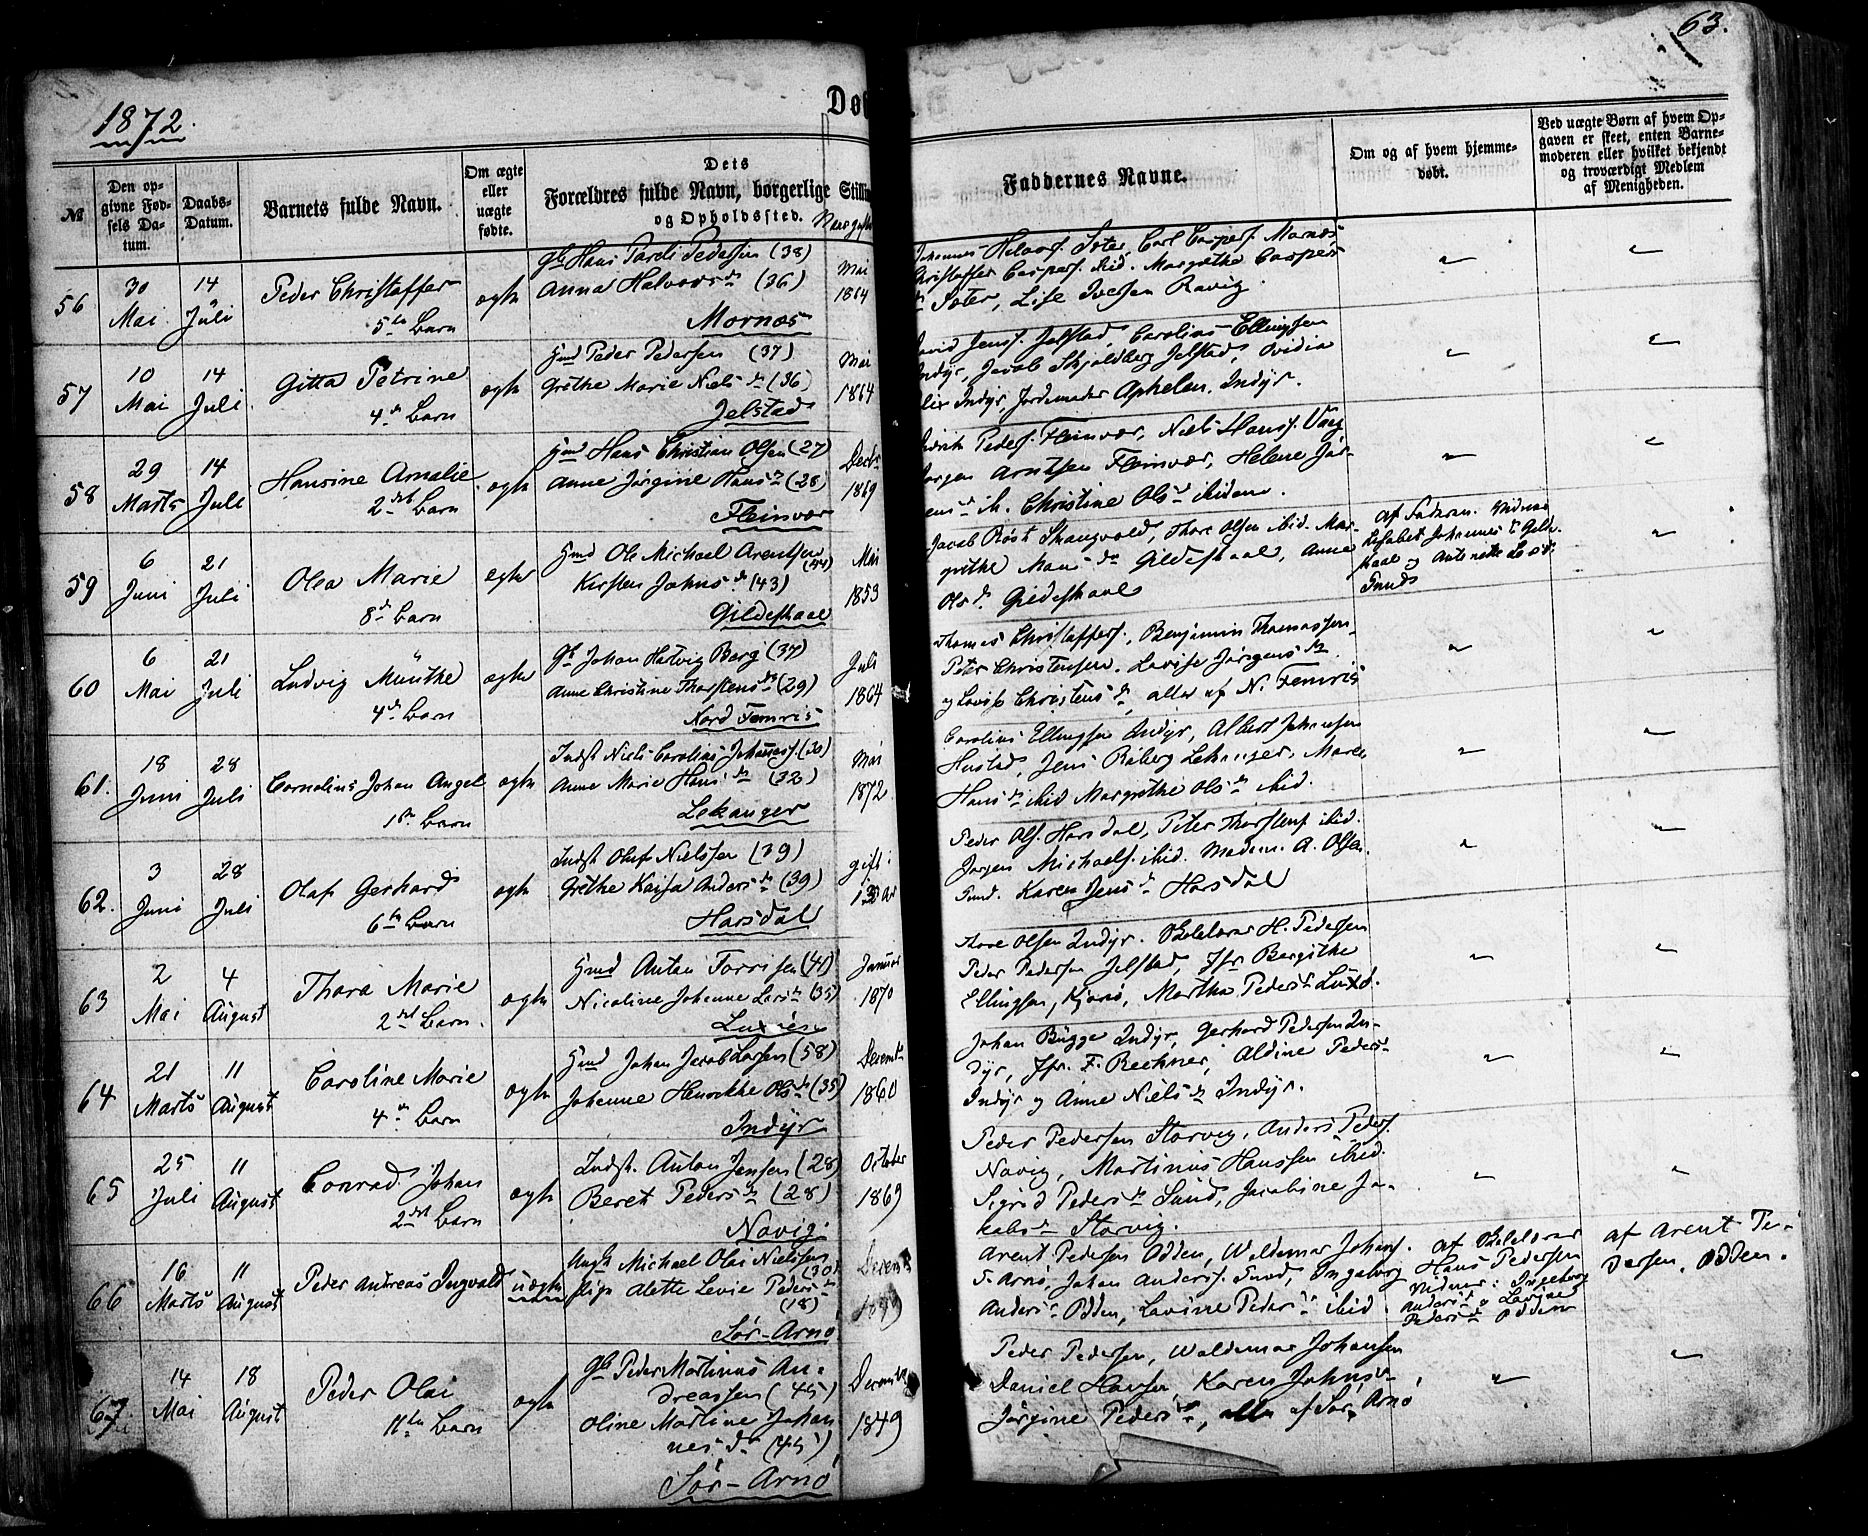 63.
1872.
Dø
№
Den opgivne Fødsels Datum.
Daabs-Datum.
Barnets fulde Navn.
Om ægte eller uægte fødte.
Dets Forældres fulde Navn, borgerlige Stilling og Opholdssted.
Faddernes Navne.
Om og af hvem hjemmedøbt.
Ved uægte Børn af hvem Opgaven er skeet, enten Barnemoderen eller hvilket bekjendt og troværdigt Medlem af Menigheden.
56
30 Mai
14 Juli
Peder Christoffer
5te Barn
ægte
Hans Pareli Pedersen (38)
Anna Halvorsd (36)
Mornæs
Mai 1864
Johannes Sæter, Carl Caspers. Mornæs
Christoffer Caspers. ibid. Margrethe Caspers
Sæter, Lise Iversen Ravig.
57
10 Mai
14 Juli
Gitta Petrine
4de Barn
ægte
Gmd Peder Pedersen (37)
Grethe Marie Nielsd (36)
Jelstad
Mai 1864
David Jens. Jelstad, Carolius Ellingsen
Indyr, Jacob Skjoldberg Jelstad, Ovidia
Indyr, Jordemoder Indyr.
58
29 Marts
14 Juli
Hansine Amalie
2det Barn
ægte
Gmd Hans Christian Olsen (27)
Anne Jørgine Hansd (28)
Fleinvær
Decbr 1869
Peders. Fleinvær, Niels Hans. Vaag
Jørgen Arntsen Fleinvær, Helene Jør-
Christine Olsd ibidem.
59
6 Juni
21 Juli
Olea Marie
8de Barn
ægte
Gmd Ole Michael Arentsen (44)
Kirsten Johnsd. (43)
Gildeskaal
Mai 1853
Jacob Røst Skaugvold, Thore Olsen ibid. Mar-
grethe Gildeskaal, Anne
Olsd. Gildeskaal
af Faderen. Vidner
Johannes Gilde-
skaal og Antonette
Sund
60
6 Mai
21 Juli
Ludvig Münthe
4de Barn
ægte
Johan Hartvig Berg (37)
Anne Christine Thorstensd (29)
Nord Femris
Juli 1864
Thomas Christoffers., Benjamin Thomassen
Peter Christensen. Lovise Jørgensd
og Lovise Christensd, alle af N. Femris
61.
18 Juni
28 Juli
Cornelius Johan Angel
1ste Barn
ægte
Indst Niels Carolius Johannes. (30)
Anne Marie Hansd (32)
Lekanger
Mai 1872
Carolius Ellingsen Indyr, Albert Johansen
Hustad, Jens Raberg Lekanger, Maren
Hansd ibid Margrethe Olsd ibid.
62.
3 Juni
28 Juli
Olaf Gerhard
6te Barn
ægte
Indst Oluf Nielssen (39)
Grethe Kaisa Andersd (39)
Horsdal
gift i
Peder Ols. Horsdal, Peter Thorstens. ibid.
Jørgen Michaels. ibid. Madam A. Olsen
Sund. Karen Jensd Horsdal
63
2 Mai
4 August
Thora Marie
2det Barn.
ægte
Gmd Anton Torrisen (41)
Nicoline Johanne Larsd (35)
Januar 1870
Thore Olsen Indyr. Skolelærer H. Pedersen
Peder Pedersen Jelstad, Jfr Bergithe
Ellingsen, Kjønø, Martha Pedersd
64
21 Marts
11 August
Caroline Marie
4de Barn
ægte
Gmd Johan Jacob Larsen (58)
Johanne Henrikke Olsd (35)
Indyr
Decemb 1860
Johan Bügge Indyr, Gerhard Pedersen In-
dyr, Jfr. F. Bechner, Aldine Pedersd
Indyr og Anne Nielsd Indyr.
65
25 Juli
11 August
Conrad Johan
2det Barn
ægte
Indst. Anton Jensen (28)
Beret Pedersd (28)
Novig.
October 1869
Peder Pedersen Storvig, Anders Peders.
Novig, Martinus Hanssen ibid.
Sigrid Pedersd Sund, Jacobine Ja-
kobsd Storvig.
66
16 Marts
11 August
Peder Andreas Ingvald
uægte
Ungk Michael Olai Nielssen (30)
Pige Alette Levie Pedersd (18)
Sør-Arnø
Arent Pedersen Odden, Waldemar Johans.
S. Arnø, Johan Anders. Sund, Ingeborg
Andersd Odden, Lavine Pedersd ibid.
af Skolelærer
Hans Pedersen
Vidner: Ingeborg
Andersd og Lavine
Pedersd Odden
af Arent Pe-
dersen, Odden.
67
14 Mai
18 August
Peder Olai
11te Barn
ægte
Gb Peder Martinus An-
dreassen (45)
Oline Martine Johan
nesd (45)
Sør-Arnø
December 1849
Peder Pedersen, Waldemar Johansen
Daniel Hansen, Karen Johnsd
Jørgine Pedersd, alle af Sør Arnø